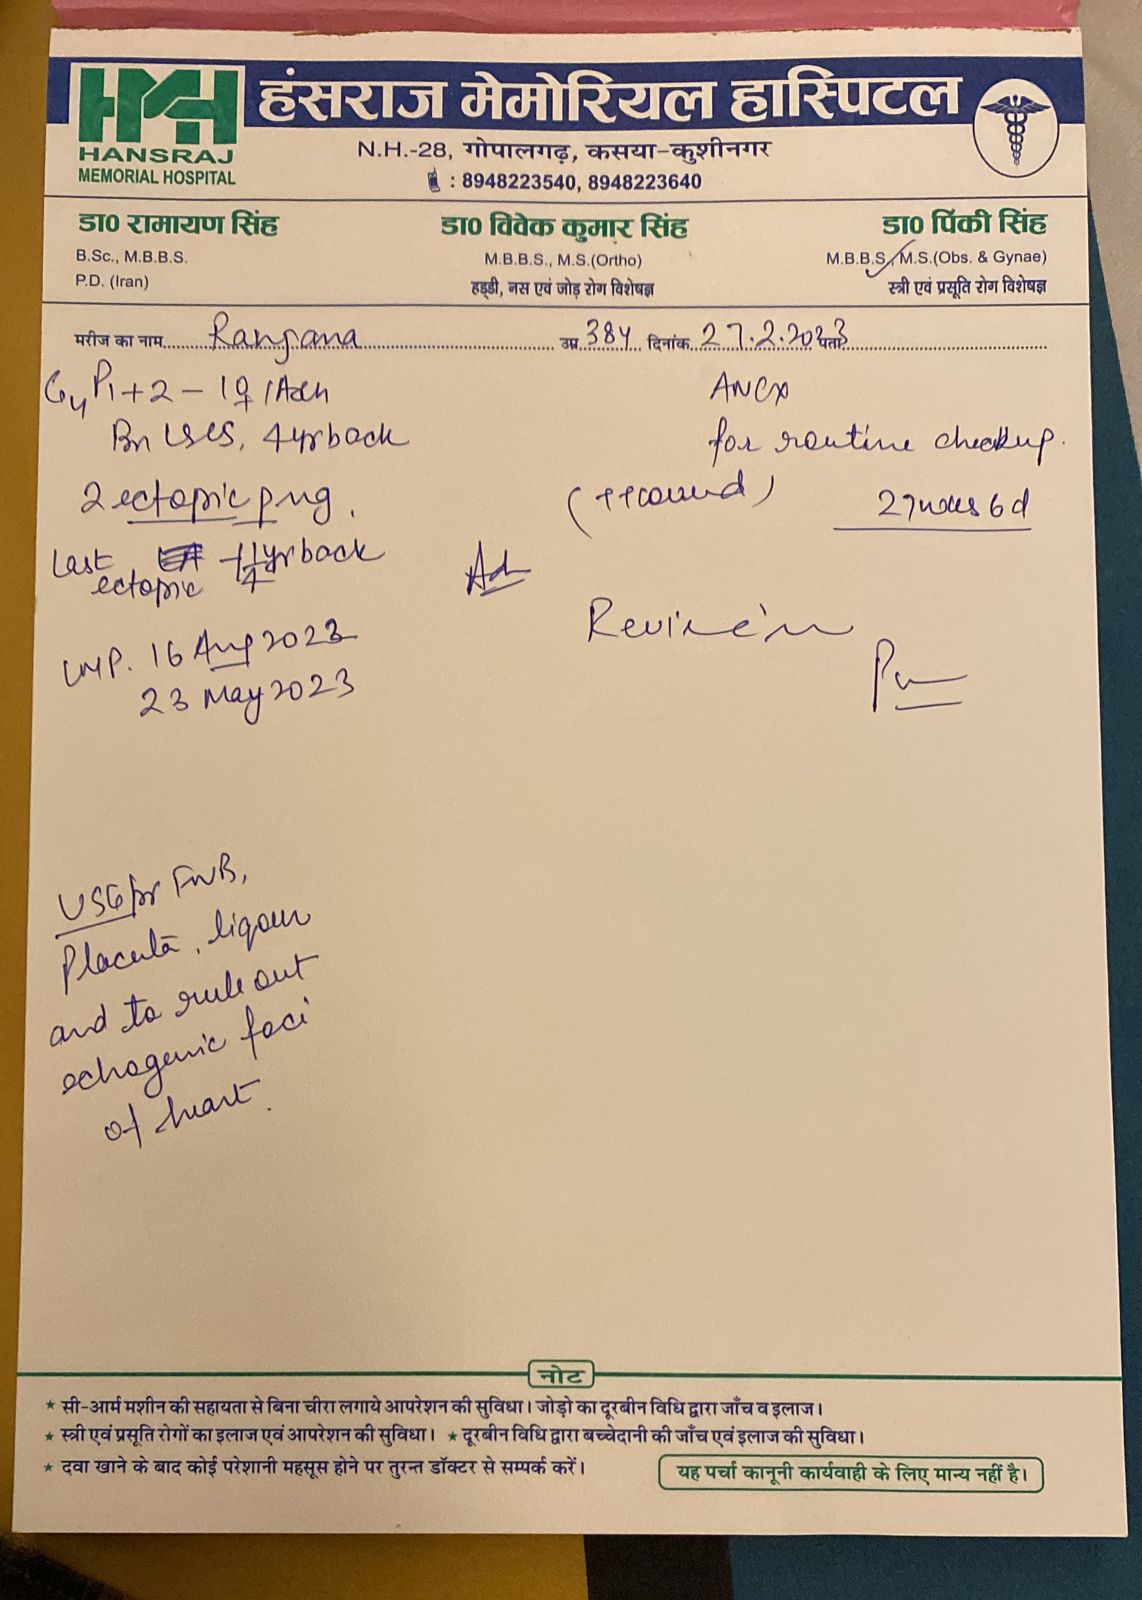 HMH
HANSRAJ
MEMORIAL HOSPITAL
हंसराज मेमोरियल हास्पिटल
N.H.-28, गोपालगढ़, कसया-कुशीनगर
: 8948223540, 8948223640
डा0 रामायण सिंह
B.Sc., M.B.B.S.
P.D. (Iran)
डा0 विवेक कुमार सिंह
M.B.B.S., M.S.(Ortho)
हड्डी, नस एवं जोड़ रोग विशेषज्ञ
डा0 पिंकी सिंह
M.B.B.S., M.S.(Obs. & Gynae)
स्त्री एवं प्रसूति रोग विशेषज्ञ
मरीज का नाम Ranjana उम्र 38Y दिनांक 27.2.2023 पता
G4P1+2 - 1♀
LSCS, 4yrback
2 ectopic png.
Last 1 1/4 yrback
ectopic
LMP. 16 Aug 2022
23 May 2023
ANC
for routine checkup.
27 6d
Adv
Review
USG for FWB,
Placenta, liqour
and to rule out
echogenic foci
of heart.
नोट
★ सी-आर्म मशीन की सहायता से बिना चीरा लगाये आपरेशन की सुविधा। जोड़ो का दूरबीन विधि द्वारा जाँच व इलाज।
★ स्त्री एवं प्रसूति रोगों का इलाज एवं आपरेशन की सुविधा। ★ दूरबीन विधि द्वारा बच्चेदानी की जाँच एवं इलाज की सुविधा।
★ दवा खाने के बाद कोई परेशानी महसूस होने पर तुरन्त डॉक्टर से सम्पर्क करें।
यह पर्चा कानूनी कार्यवाही के लिए मान्य नहीं है।